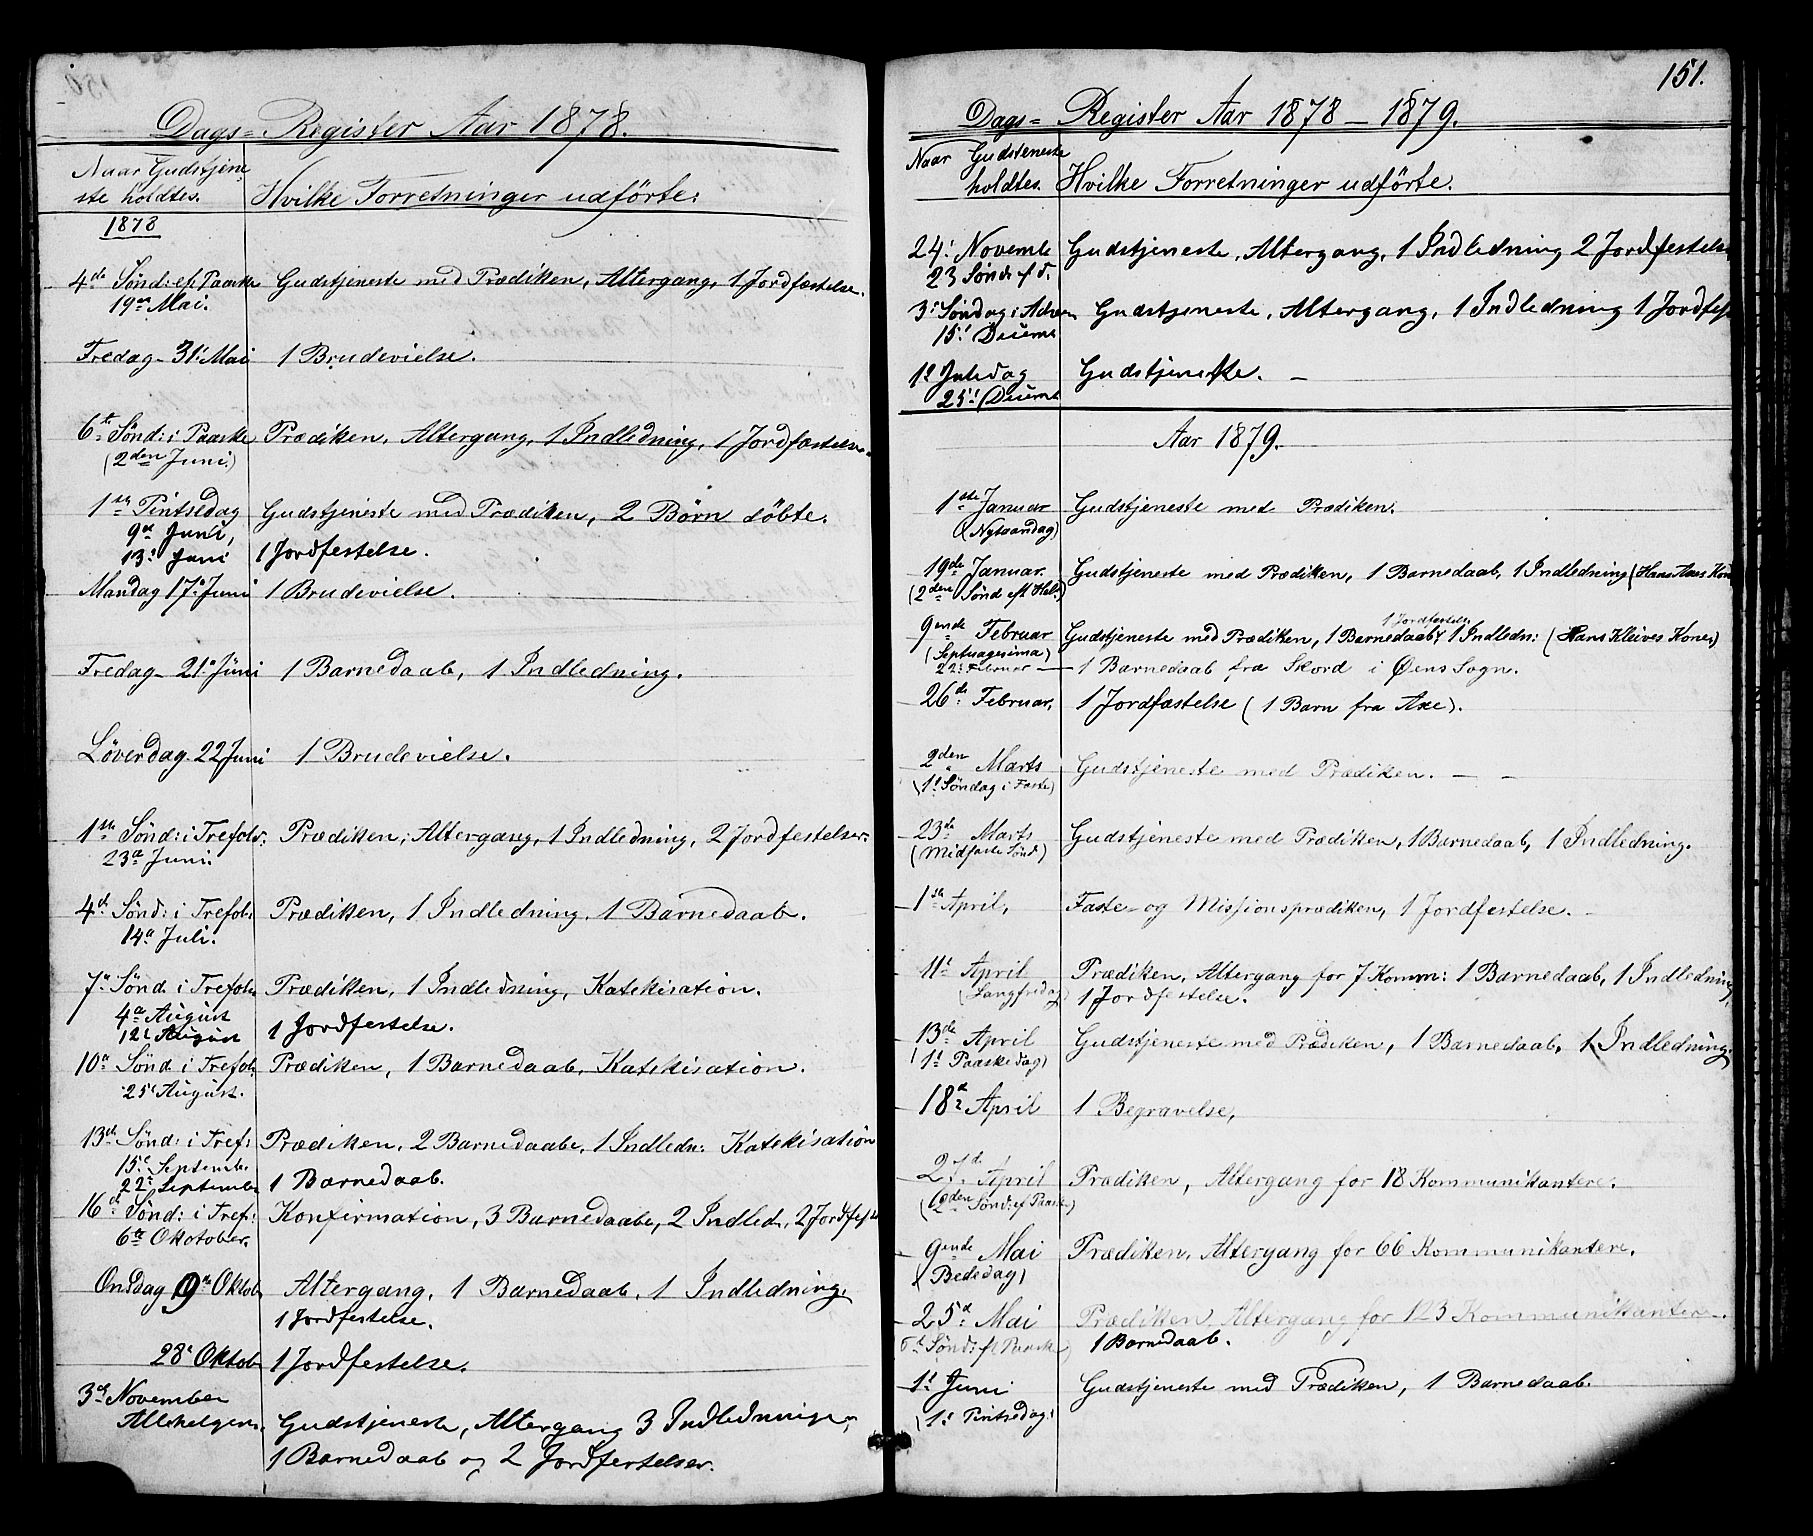 Dags= Register Aar 1878.
Naar Gudstjene
ste holdtes. Hvilke Forretninger udförte:
1878
4de Sønd: ef. Paaske Gudstjeneste med Prædiken, Altergang, 1 Jordfæstelse.
19de Mai.
Fredag 31' Mai 1 Brudevielse.
6te Sønd: i Paaske Prædiken, Altergang, 1 Indledning, 1 Jordfæstelse.
(2den Juni)
1ste Pintsedag Gudstjeneste med Prædiken, 2 Børn døbte.
9de Juni,
13' Juni 1 Jordfestelse.
Mandag 17' Juni 1 Brudevielse.
Fredag 21' Juni 1 Barnedaab, 1 Indledning.
Löverdag 22 Juni 1 Brudevielse.
1ste Sönd: i Trefold: Prædiken, Altergang, 1 Indledning, 2 Jordfestelser.
23de Juni.
4de Sönd: i Trefol: Prædiken, 1 Indledning, 1 Barnedaab.
14de Juli.
7de Sönd. i Trefol: Prædiken, 1 Indledning, Katekisation.
4de August
12' August 1 Jordfestelse.
10de Sönd i Trefol: Prædiken, 1 Barnedaab, Katekisation.
25' August.
13de Sönd: i Tref: Prædiken, 2 Barnedaabe, 1 Indledn: Katekisation
15' Septembe
22' September 1 Barnedaab.
16de Sönd: i Tref: Konfirmation, 3 Barnedaabe, 2 Indled., 2 Jordfest
6te Okotober.
Onsdag 9de Oktob Altergang, 1 Barnedaab, 1 Indledning.
1 Jordfestelse.
28' Oktob 1 Jordfestelse.
3de November
Allehelgens. Gudstjeneste, Altergang 3 Indledninger,
1 Barnedaab og 2 Jordfertelser.
151.
Dags= Register Aar 1878 – 1879.
Naar Gudsteneste
holdtes. Hvilke Forretninger udförte.
24' Novembe Gudstjeneste, Altergang, 1 Indledning 2 Jordfestelse
23 Sønd: ef d.
3' Søndag i Adven Gudstjeneste, Altergang, 1 Indledning 1 Jordfest
15' Decembe
1' Juledag Gudstjeneste. –
25' Decembe
Aar 1879.
1ste Januar Gudstjeneste med Prædiken.
(Nytaarsdag)
19de Januar. Gudstjeneste med Prædiken, 1 Barnedaab, 1 Indledning (Hans Axes Kone
(2den Sönd eft Hel:)
1 Jordfestelse
9ende Februar Gudstjeneste med Prædiken, 1 Barnedaab, 1 Indledn: (Hans Kleives Kones)
(Septuagesima)
22' Februar – 1 Barnedaab fra Skord i Ørens Sogn.
26de Februar, 1 Jordfæstelse (1 Barn fra Axe).
2den Marts Gudstjeneste med Prædiken. – –
(1' Søndag i Faste)
23de Marts Gudstjeneste med Prædiken, 1 Barnedaab, 1 Indledning.
(Midfaste Sønd)
1ste April, Faste- og Missionsprædiken, 1 Jordfestelse. –
11' April Prædiken, Altergang for 7 Komm: 1 Barnedaab, 1 Indledning,
(Langfredag) 1 Jordfestelse.
13de April Gudstjeneste med Prædiken, 1 Barnedaab, 1 Indledning.
(1' Paaskedag)
18de April 1 Begravelse,
27de April Prædiken, Altergang for 18 Kommunikantere.
Sönd: ef Paaske)
9ende Mai Prædiken, Altergang for 66 Kommunikantere.
(Bededag)
25de Mai Prædiken, Altergang for 123 Kommunikantere.
6te Sønd: ef Paaske) 1 Barnedaab.
1' Juni Gudstjeneste med Prædiken, 1 Barnedaab.
(1' Pintsedag)